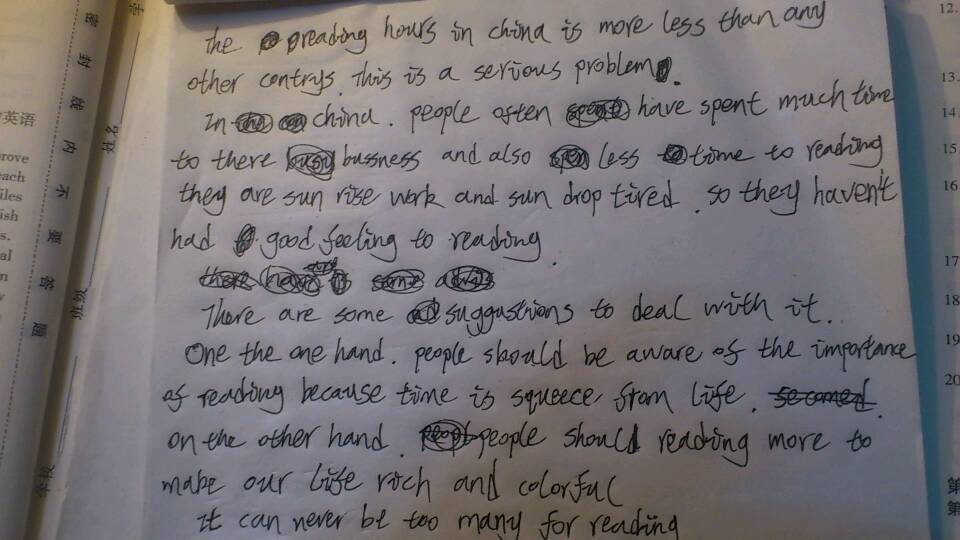 the reading hours in china is more less than any
other contrys. This is a serious problem.
In china. people often have spent much time
to there bussness and also less time to reading
they are sun rise work and sun drop tired. so they haven't
had good feeling to reading.
There are some suggustrions to deal with it.
One the one hand. people should be aware of the importance
of reading because time is squeece from life.
on the other hand. people should reading more to
make our life rich and colorful
it can never be too many for reading
密 封 线 内 不 要 答 题
姓名
班级
学校
学
英语
rove
each
iles
ish
s.
al
n
y
12.
13.
14.
15.
16
17
18
19
20
第
第